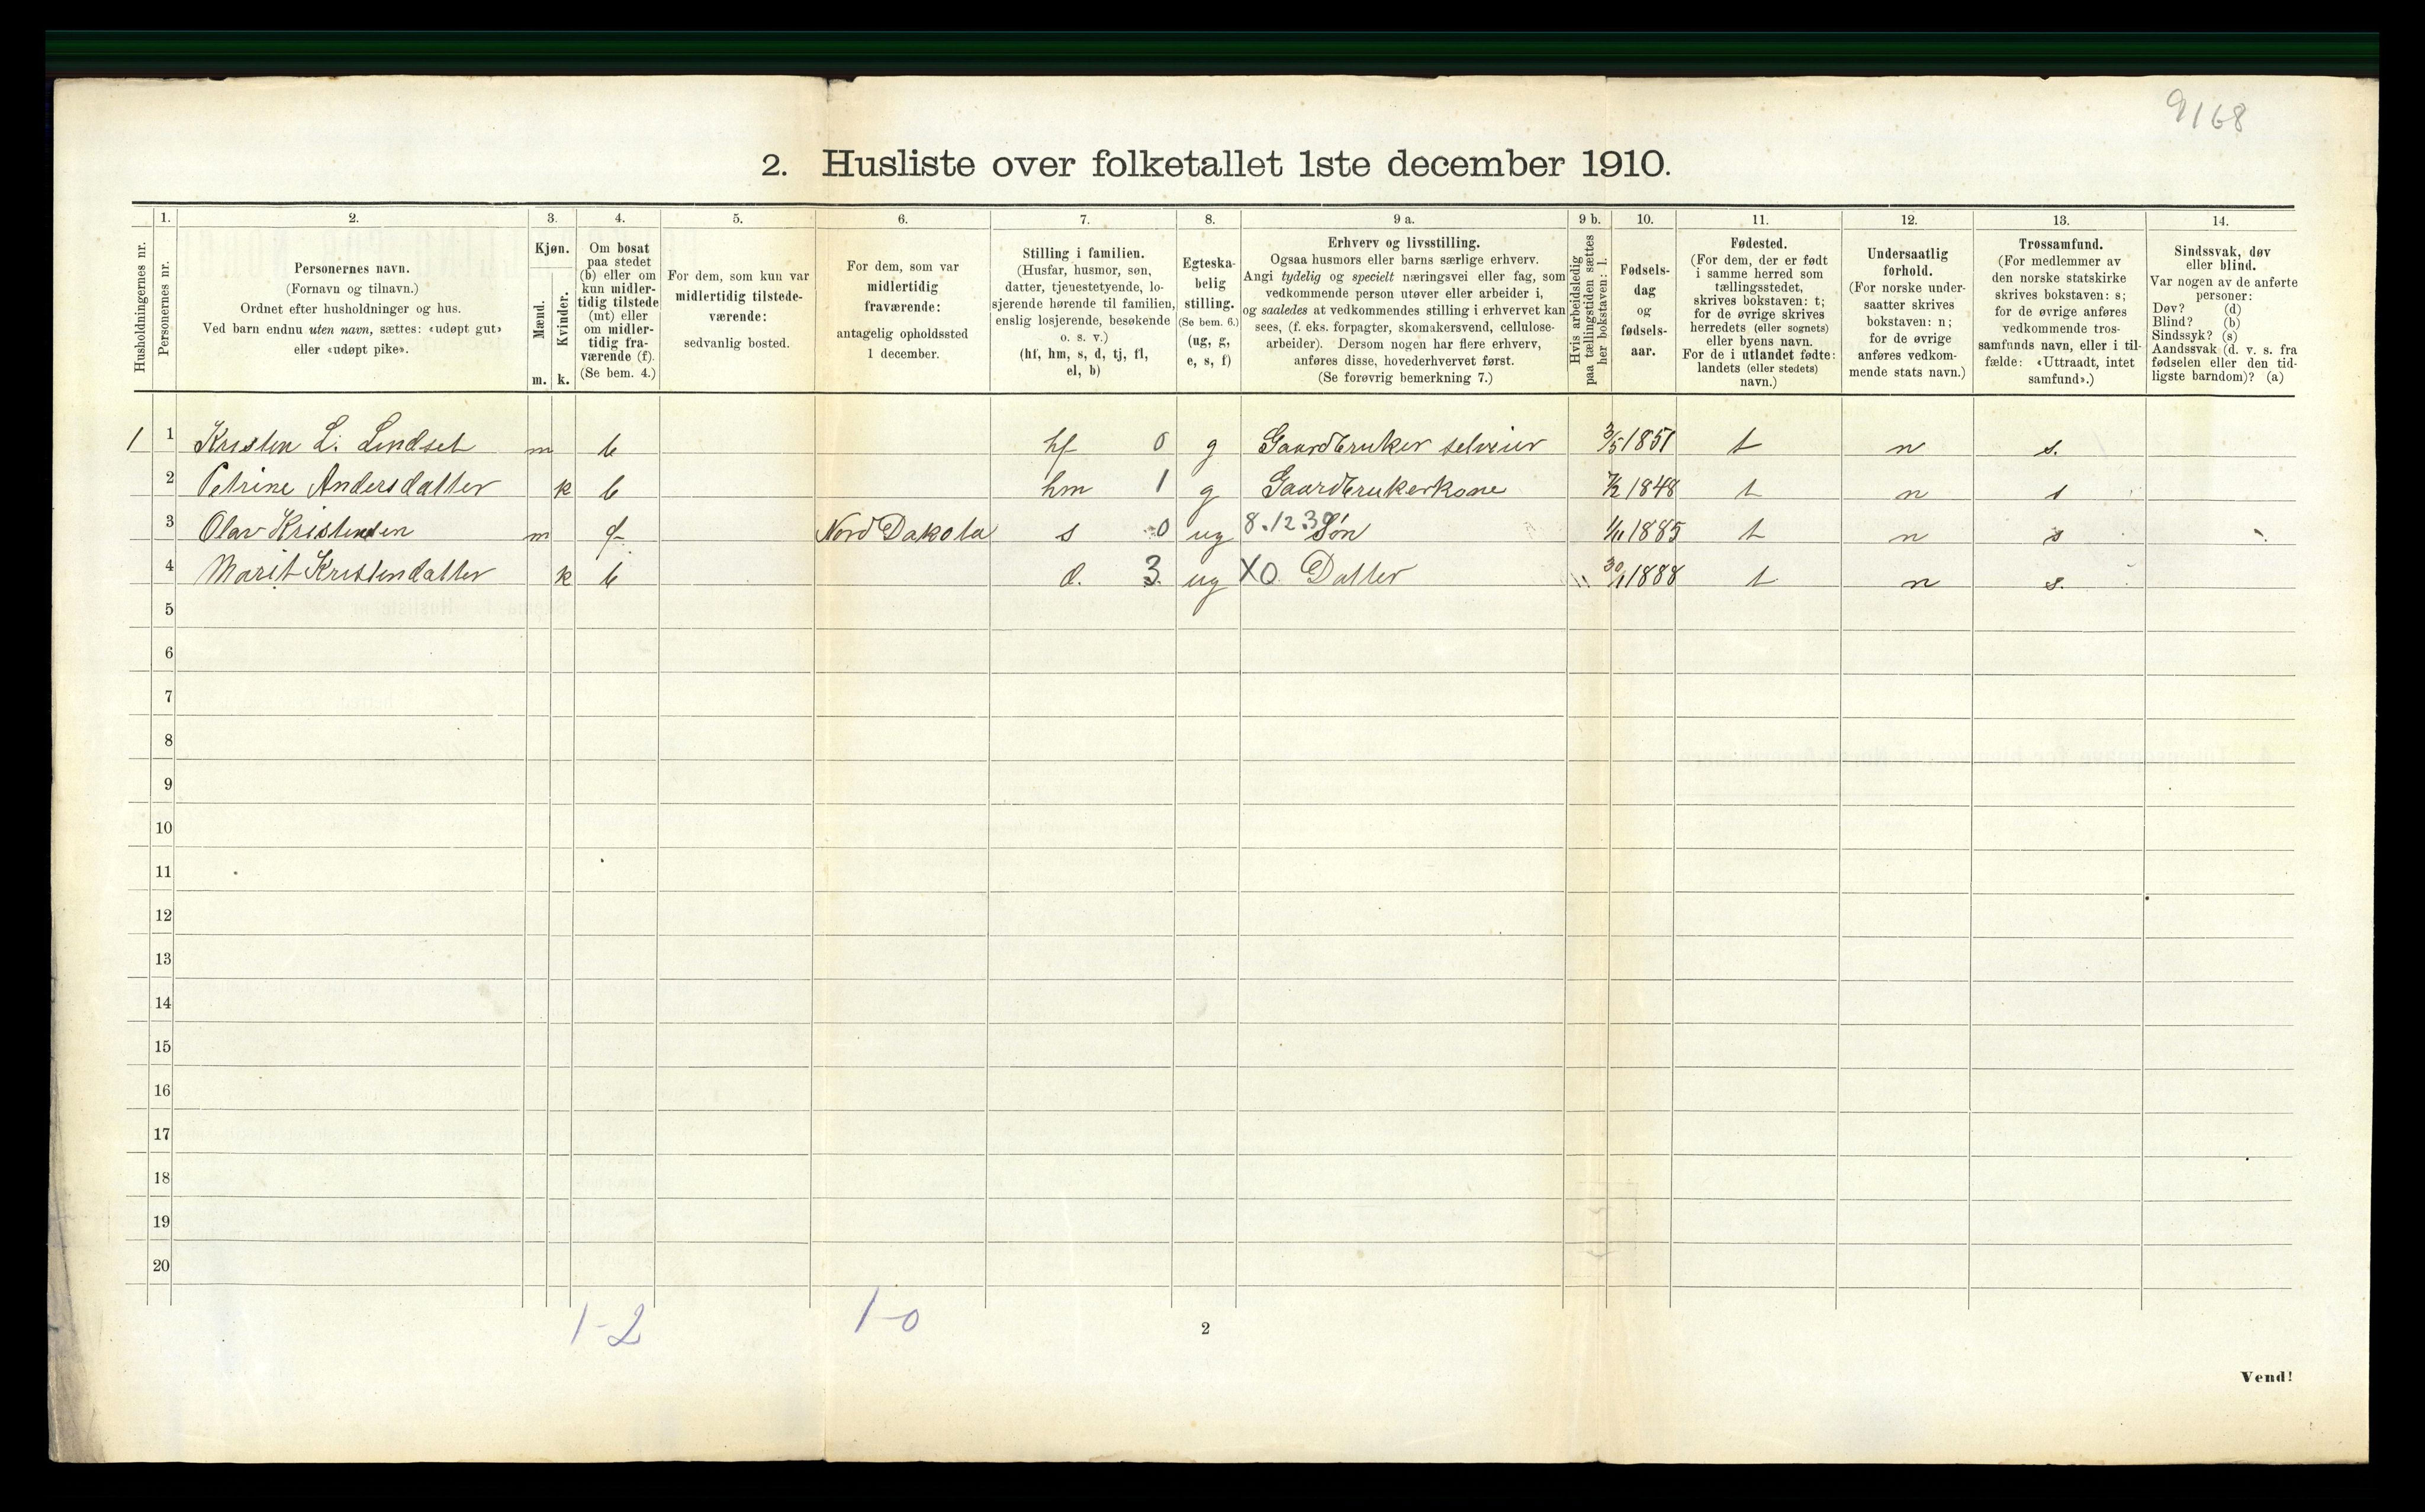 9168
2. Husliste over folketallet 1ste december 1910.
Husholdningernes nr.
1.
Personernes nr.
2.
Personernes navn.
(Fornavn og tilnavn.)
Ordnet efter husholdninger og hus.
Ved barn endnu uten navn, sættes: «udøpt gut»
eller «udøpt pike».
3.
Kjøn.
Mænd.
Kvinder.
m. k.
4.
Om bosat
paa stedet
(b) eller om
kun midler-
tidig tilstede
(mt) eller
om midler-
tidig fra-
værende (f).
(Se bem. 4.)
5.
For dem, som kun var
midlertidig tilstede-
værende:
sedvanlig bosted.
6.
For dem, som var
midlertidig
fraværende:
antagelig opholdssted
1 december.
7.
Stilling i familien.
(Husfar, husmor, søn,
datter, tjenestetyende, lo-
sjerende hørende til familien,
enslig losjerende, besøkende
o. s. v.)
(hf, hm, s, d, tj, fl,
el, b)
8.
Egteska-
belig
stilling.
(Se bem. 6.)
(ug, g,
e, s, f)
9 a.
Erhverv og livsstilling.
Ogsaa husmors eller barns særlige erhverv.
Angi tydelig og specielt næringsvei eller fag, som
vedkommende person utøver eller arbeider i,
og saaledes at vedkommendes stilling i erhvervet kan
sees, (f. eks. forpagter, skomakersvend, cellulose-
arbeider). Dersom nogen har flere erhverv,
anføres disse, hovederhvervet først.
(Se forøvrig bemerkning 7.)
9 b.
Hvis arbeidsledig
paa tællingstiden sættes
her bokstaven: l.
10.
Fødsels-
dag
og
fødsels-
aar.
11.
Fødested.
(For dem, der er født
i samme herred som
tællingsstedet,
skrives bokstaven: t;
for de øvrige skrives
herredets (eller sognets)
eller byens navn.
For de i utlandet fødte:
landets (eller stedets)
navn.)
12.
Undersaatlig
forhold.
(For norske under-
saatter skrives
bokstaven: n;
for de øvrige
anføres vedkom-
mende stats navn.)
13.
Trossamfund.
(For medlemmer av
den norske statskirke
skrives bokstaven: s;
for de øvrige anføres
vedkommende tros-
samfunds navn, eller i til-
fælde: «Uttraadt, intet
samfund».)
14.
Sindssvak, døv
eller blind.
Var nogen av de anførte
personer:
Døv? (d)
Blind? (b)
Sindssyk? (s)
Aandssvak (d. v. s. fra
fødselen eller den tid-
ligste barndom)? (a)
1 1 Kristen L. Lindset m b hf 0 g Gaardbruker selveier 3/5 1851 t n s.
2 Petrine Andersdatter k b hm 1 g Gaardbrukerkone 7/2 1848 t n s
3 Olav Kristensen m f Nord Dakota s 0 ug 8.12.30 Søn 1/11 1885 t n s
4 Marit Kristendatter k b d. 3 ug XO Datter 30/1 1888 t n s.
5
6
7
8
9
10
11
12
13
14
15
16
17
18
19
20
1-2 1-0
2
Vend!